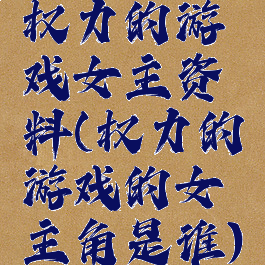 权力的游
戏女主资
料(权力的
游戏的女
主角是谁)